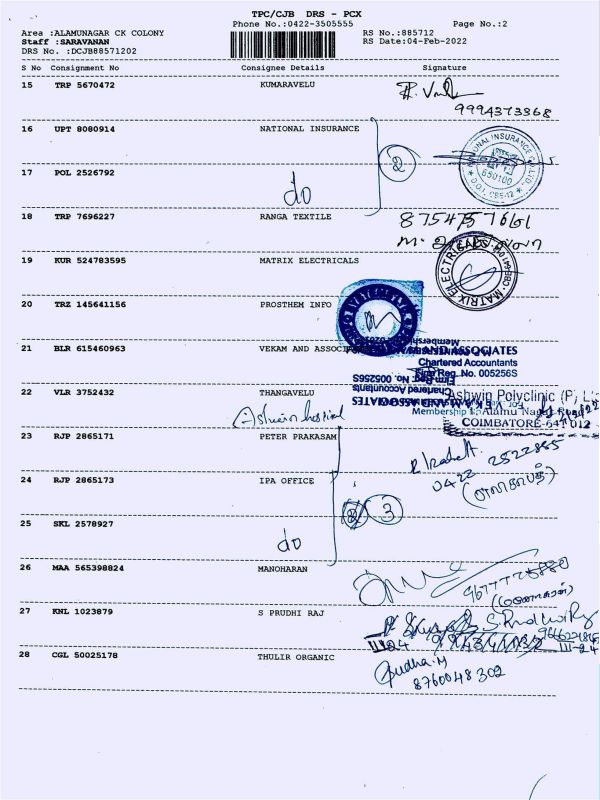 TPC/CJB DRS - PCX
Phone No.:0422-3505555 Page No.:2
Area :ALAMUNAGAR CK COLONY RS No.:885712
Staff :SARAVANAN RS Date:04-Feb-2022
DRS No. :DCJB88571202
S No Consignment No Consignee Details Signature
15 TRP 5670472 KUMARAVELU
9994373368
16 UPT 8080914 NATIONAL INSURANCE
2
NATIONAL INSURANCE
650100
17 POL 2526792 do
18 TRP 7696227 RANGA TEXTILE
19 KUR 524783595 MATRIX ELECTRICALS
MATRIX ELECTRICALS
20 TRZ 145641156 PROSTHEM INFO
21 BLR 615460963 VEKAM AND
AND ASSOCIATES
Chartered Accountants
Firm Reg. No. 005256S
22 VLR 3752432 THANGAVELU
Ashwin Polyclinic (P)
COIMBATORE-641 012
23 RJP 2865171 PETER PRAKASAM
0422 2522885
24 RJP 2865173 IPA OFFICE
3
25 SKL 2578927 do
26 MAA 565398824 MANOHARAN
27 KNL 1023879 S PRUDHI RAJ
28 CGL 50025178 THULIR ORGANIC
Sudha.M
8760048302